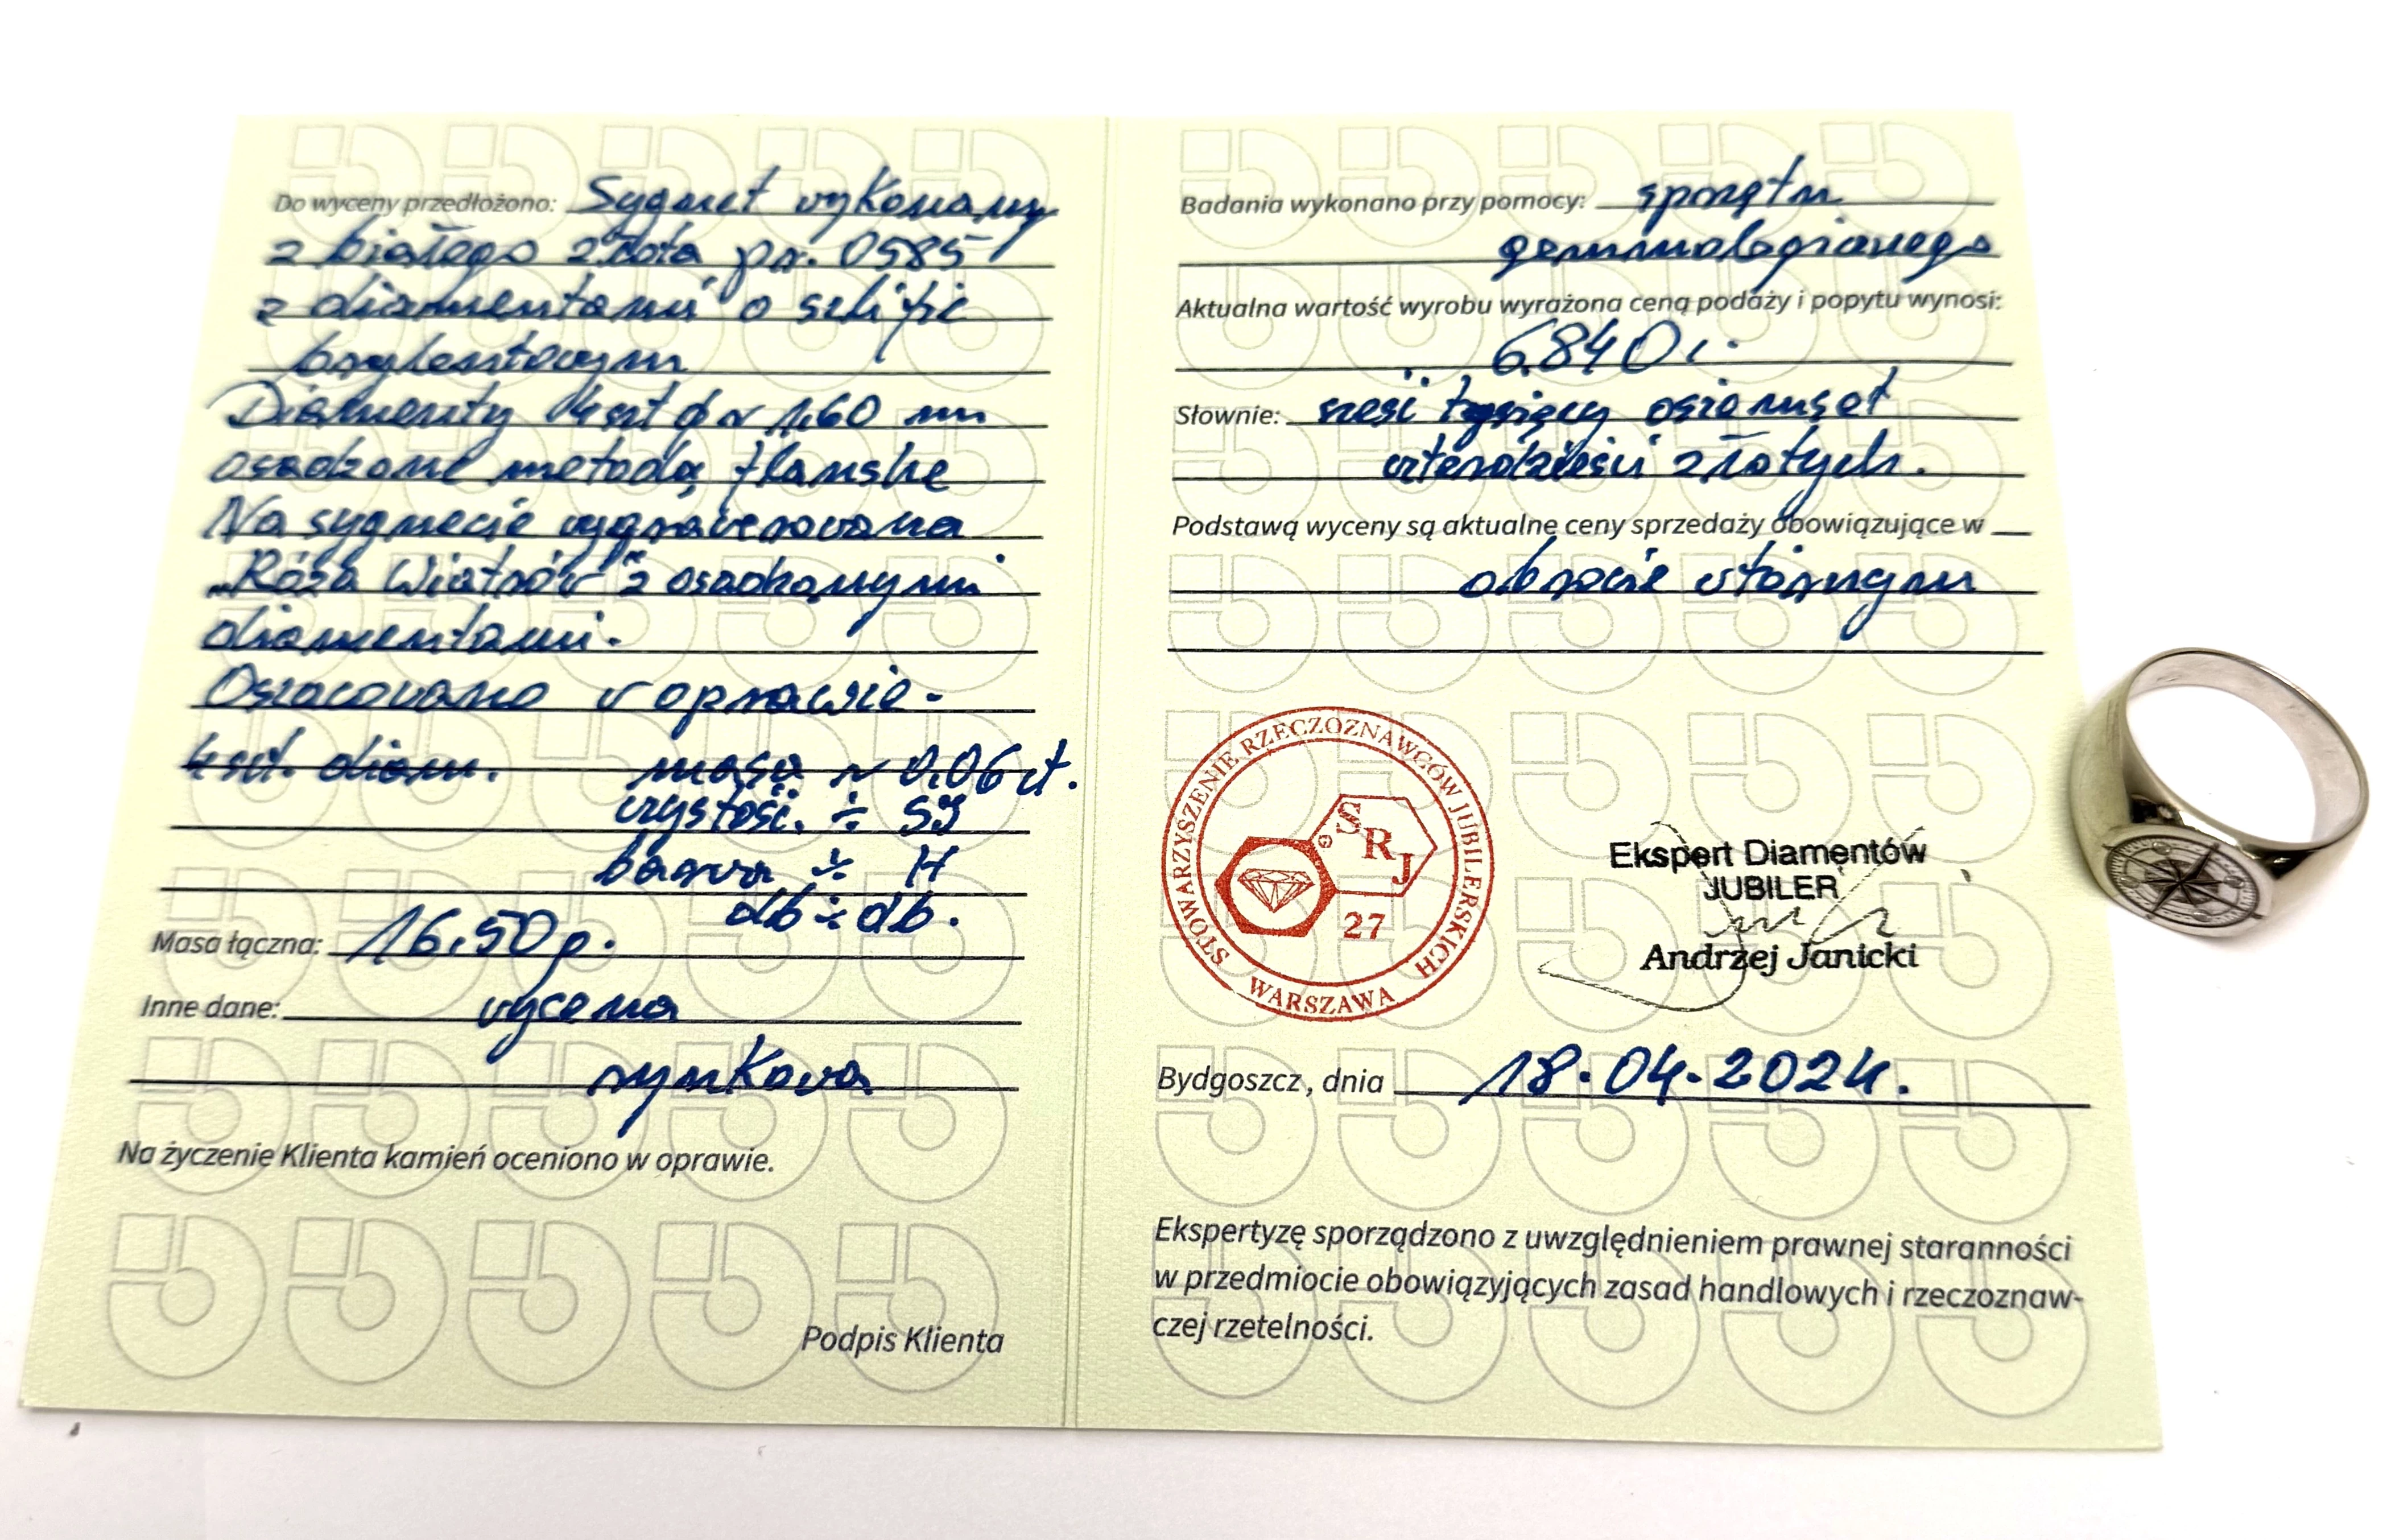 Do wyceny przedłożono: Sygnet wykonany
z białego złota pr. 0585
z diamentami o szlifie
brylantowym
Diamenty 4 szt ϕ ~ 1,60 mm
osadzone metodą flanske
Na sygnecie wygrawerowana
„Róża Wiatrów" z osadzonymi
diamentami.
Oszacowano w oprawie.
4 szt. diam. masa ~ 0,06 ct.
czystość ÷ SI
barwa ÷ H
db ÷ db.
Masa łączna: 16,50 g.
Inne dane: wycena
rynkowa
Na życzenie Klienta kamień oceniono w oprawie.
Podpis Klienta
Badania wykonano przy pomocy: sprzętu
gemmologicznego
Aktualna wartość wyrobu wyrażona ceną podaży i popytu wynosi:
6.840,-
Słownie: sześć tysięcy osiemset
czterdzieści złotych.
Podstawą wyceny są aktualne ceny sprzedaży obowiązujące w
obrocie wtórnym
STOWARZYSZENIE RZECZOZNAWCÓW JUBILERSKICH
WARSZAWA
SRJ
27
Ekspert Diamentów
JUBILER
Andrzej Janicki
Bydgoszcz, dnia 18.04.2024.
Ekspertyzę sporządzono z uwzględnieniem prawnej staranności
w przedmiocie obowiązyjących zasad handlowych i rzeczoznaw-
czej rzetelności.